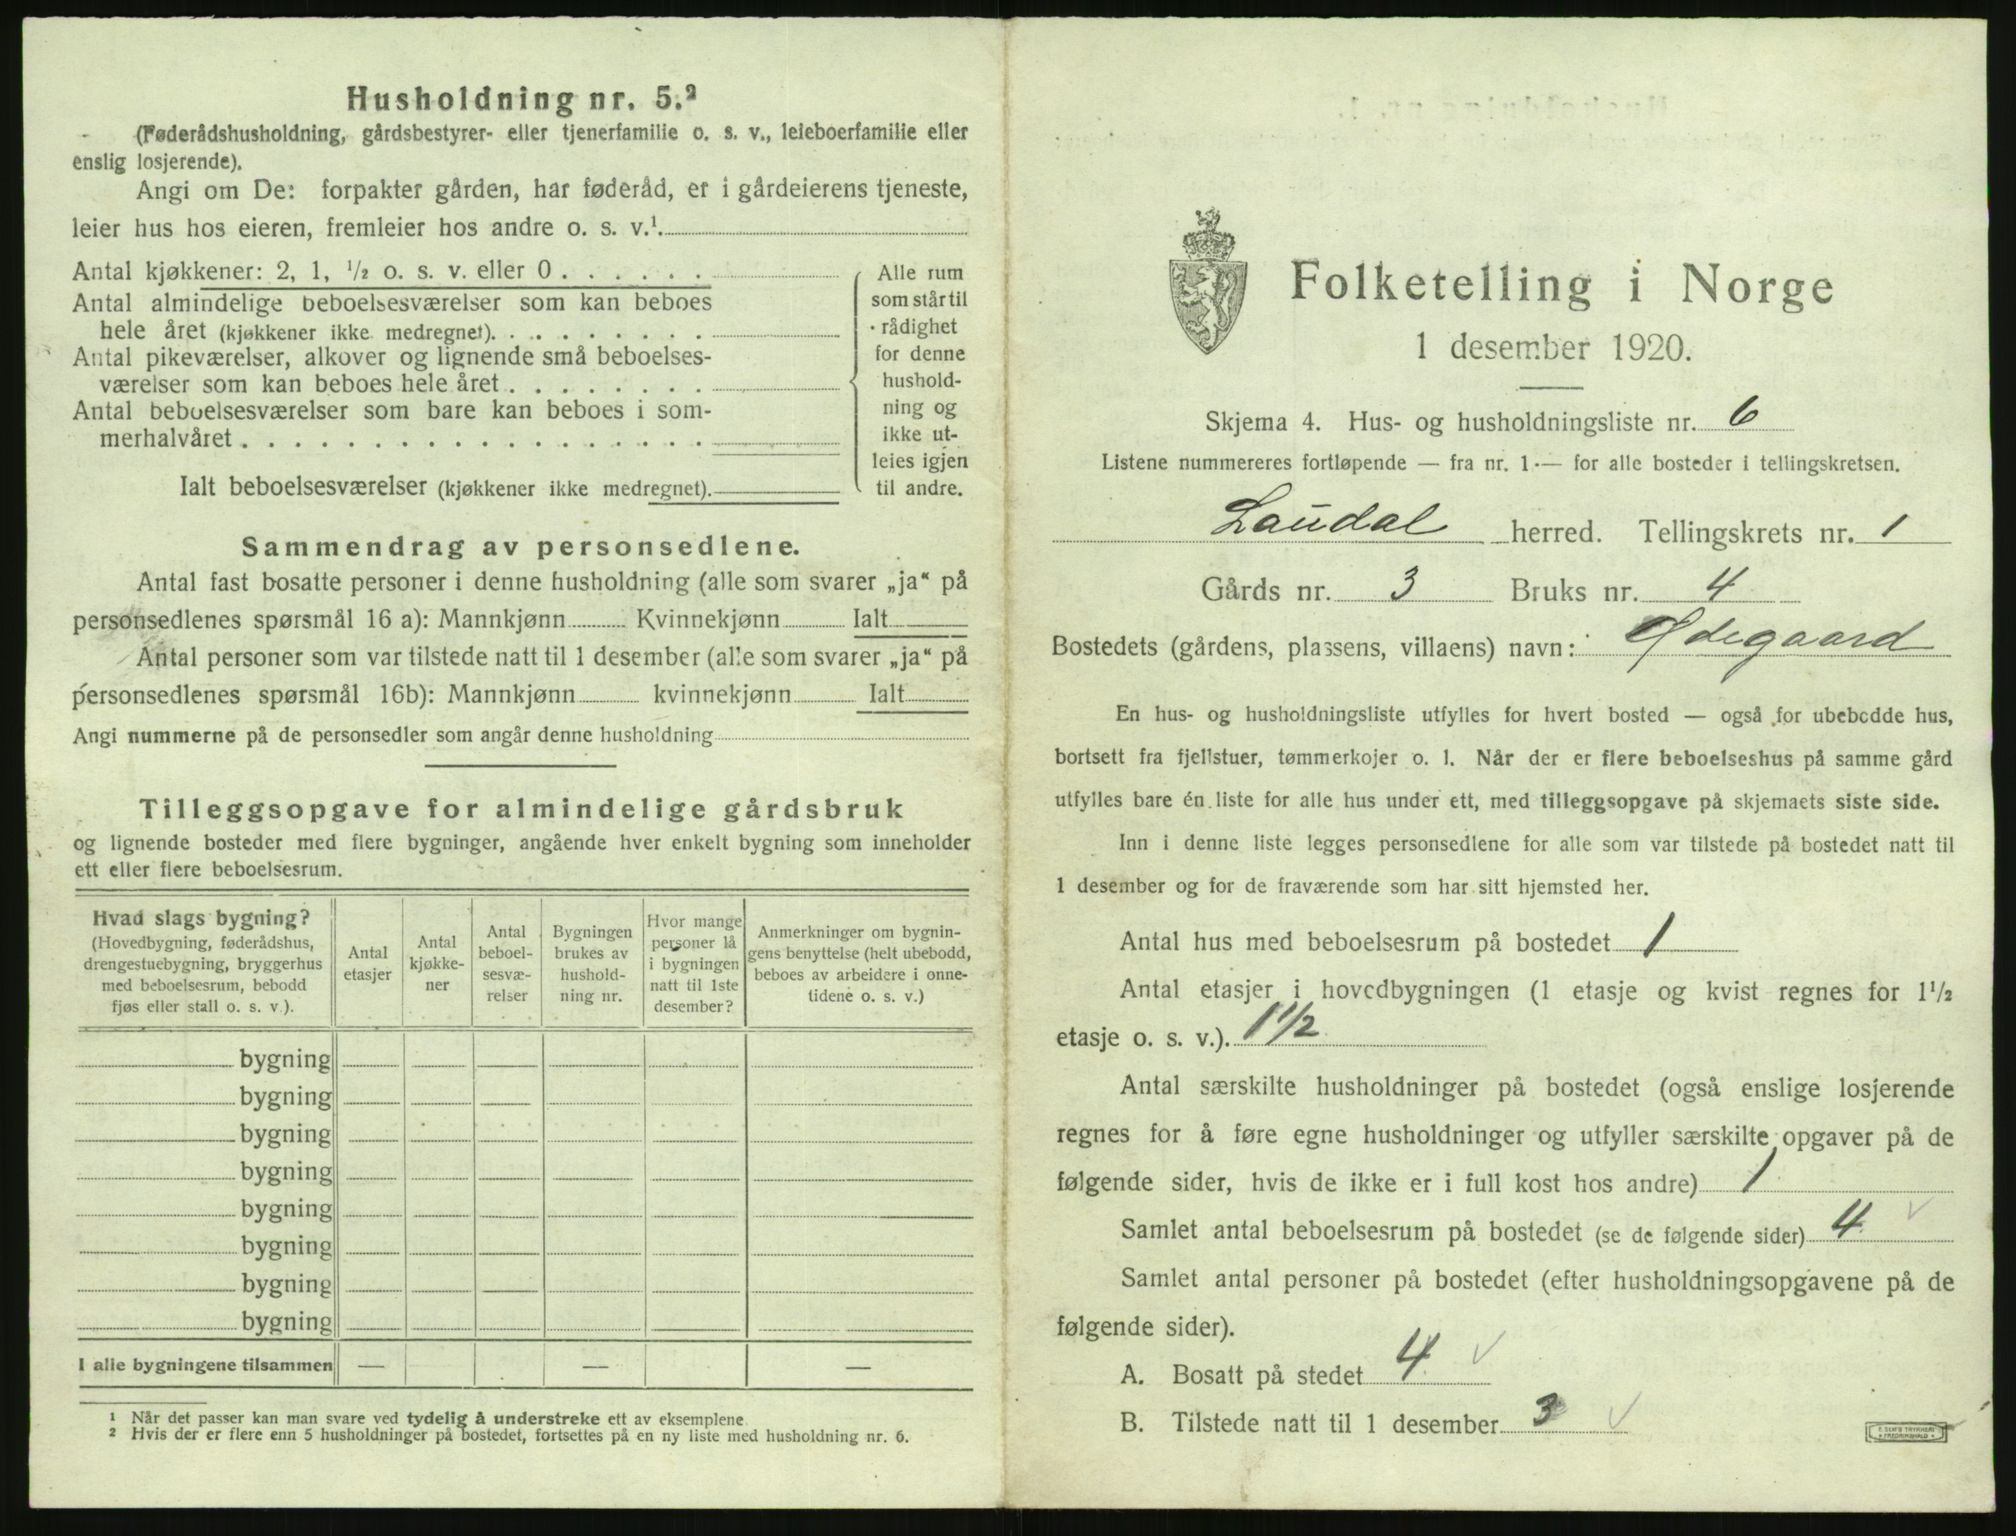 Husholdning nr. 5.²
(Føderådshusholdning, gårdsbestyrer- eller tjenerfamilie o. s. v., leieboerfamilie eller
enslig losjerende).
Angi om De: forpakter gården, har føderåd, er i gårdeierens tjeneste,
leier hus hos eieren, fremleier hos andre o. s. v.¹
Antal kjøkkener: 2, 1, ½ o. s. v. eller 0 . . . . . .
Antal almindelige beboelsesværelser som kan beboes
hele året (kjøkkener ikke medregnet). . . . . . . . .
Antal pikeværelser, alkover og lignende små beboelses-
værelser som kan beboes hele året . . . . . . . .
Antal beboelsesværelser som bare kan beboes i som-
merhalvåret . . . . . . . . . . . . . . . . . .
Ialt beboelsesværelser (kjøkkener ikke medregnet).
Alle rum
som står til
rådighet
for denne
hushold-
ning og
ikke ut-
leies igjen
til andre.
Sammendrag av personsedlene.
Antal fast bosatte personer i denne husholdning (alle som svarer „ja“ på
personsedlenes spørsmål 16 a): Mannkjønn Kvinnekjønn Ialt
Antal personer som var tilstede natt til 1 desember (alle som svarer „ja“ på
personsedlenes spørsmål 16b): Mannkjønn kvinnekjønn Ialt
Angi nummerne på de personsedler som angår denne husholdning
Tilleggsopgave for almindelige gårdsbruk
og lignende bosteder med flere bygninger, angående hver enkelt bygning som inneholder
ett eller flere beboelsesrum.
Hvad slags bygning?
(Hovedbygning, føderådshus,
drengestuebygning, bryggerhus
med beboelsesrum, bebodd
fjøs eller stall o. s. v.).
Antal
etasjer
Antal
kjøkke-
ner
Antal
beboel-
sesvæ-
relser
Bygningen
brukes av
hushold-
ning nr.
Hvor mange
personer lå
i bygningen
natt til 1ste
desember?
Anmerkninger om bygnin-
gens benyttelse (helt ubebodd,
beboes av arbeidere i onne-
tidene o. s. v.)
bygning
bygning
bygning
bygning
bygning
bygning
bygning
bygning
I alle bygningene tilsammen — — —
¹ Når det passer kan man svare ved tydelig å understreke ett av eksemplene
² Hvis der er flere enn 5 husholdninger på bostedet, fortsettes på en ny liste med husholdning nr. 6.
Folketelling i Norge
1 desember 1920.
Skjema 4. Hus- og husholdningsliste nr. 6
Listene nummereres fortløpende — fra nr. 1 — for alle bosteder i tellingskretsen.
Laudal herred. Tellingskrets nr. 1
Gårds nr. 3 Bruks nr. 4
Bostedets (gårdens, plassens, villaens) navn: Ødegaard
En hus- og husholdningsliste utfylles for hvert bosted — også for ubebodde hus,
bortsett fra fjellstuer, tømmerkojer o. l. Når der er flere beboelseshus på samme gård
utfylles bare én liste for alle hus under ett, med tilleggsopgave på skjemaets siste side.
Inn i denne liste legges personsedlene for alle som var tilstede på bostedet natt til
1 desember og for de fraværende som har sitt hjemsted her.
Antal hus med beboelsesrum på bostedet 1
Antal etasjer i hovedbygningen (1 etasje og kvist regnes for 1½
etasje o. s. v.). 1 1/2
Antal særskilte husholdninger på bostedet (også enslige losjerende
regnes for å føre egne husholdninger og utfyller særskilte opgaver på de
følgende sider, hvis de ikke er i full kost hos andre) 1
Samlet antal beboelsesrum på bostedet (se de følgende sider) 4
Samlet antal personer på bostedet (efter husholdningsopgavene på de
følgende sider).
A. Bosatt på stedet 4
B. Tilstede natt til 1 desember 3